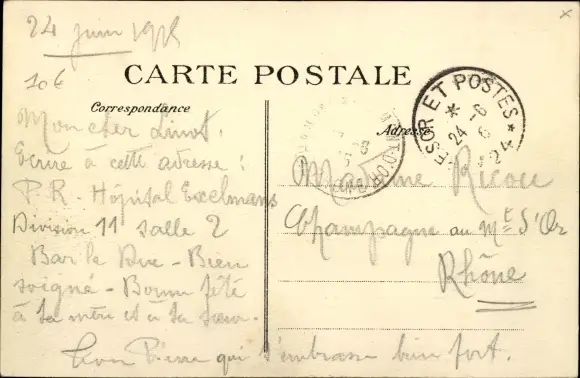 24 juin 1915
10€
CARTE POSTALE
Correspondance
Adresse
TRESOR ET POSTES * 24 *
24 - 6
Mon cher Linot.
Ecrire à cette adresse :
P. R. Hôpital Exelmans
Division 11 salle 2
Bar le Duc - Bien
soigné - Bonne fête
à ta mère et à ta soeur.
Ton Pierre qui t'embrasse bien fort.
Madame Ricou
Champagne au Mt d'Or
Rhône